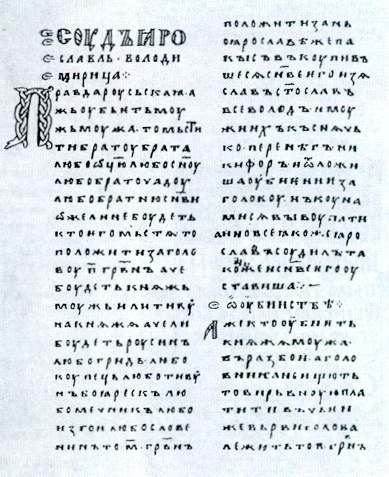 соудъ ꙗро
славль · володи
мирица ·
Правда роусьскаꙗ · а
жь оубьѥть моу
жь моужа · то мьсти
ти братоу брата
любо ѿцю любо сн҃оу
любо братоучадоу
любо братню сн҃ви
ѡже ли не боудеть
кто ѥго мьстѧ то
положити за голо
воу · п҃ · грв҃нъ аче
боудеть кнѧжь
моужь или тивоу
на кнѧжа аче ли
боудеть роусинъ
любо гридь · любо
коупець любо тивоу
нъ боꙗрескъ лю
бо мечникъ любо
изгои любо слове
нинъ то · м҃ · грв҃нъ
положити за нь
по ꙗрославѣ же па
кы съвъкоупивъ
шесѧ сн҃ве ѥго изѧ
славъ ст҃ославъ
всеволодъ и моу
жи ихъ къснѧчь
ко · перенѣгъ ни
кифоръ · и ѿложи
ша оубиѥниѥ за
головоу нъ коуна
ми сѧ выкоупати
а ино все ꙗкоже ꙗро
славъ соудилъ та
коже и сн҃ве ѥго оу
ставиша ·
ѡ оубииствѣ ·
Аже кто оубиѥть
кнѧжа моужа ·
въ разбои · а голо
вника не ищють
то вирьвноую пла
тити въ чьѥи
же вьрви голова
лежить то · п҃ · грв҃нъ